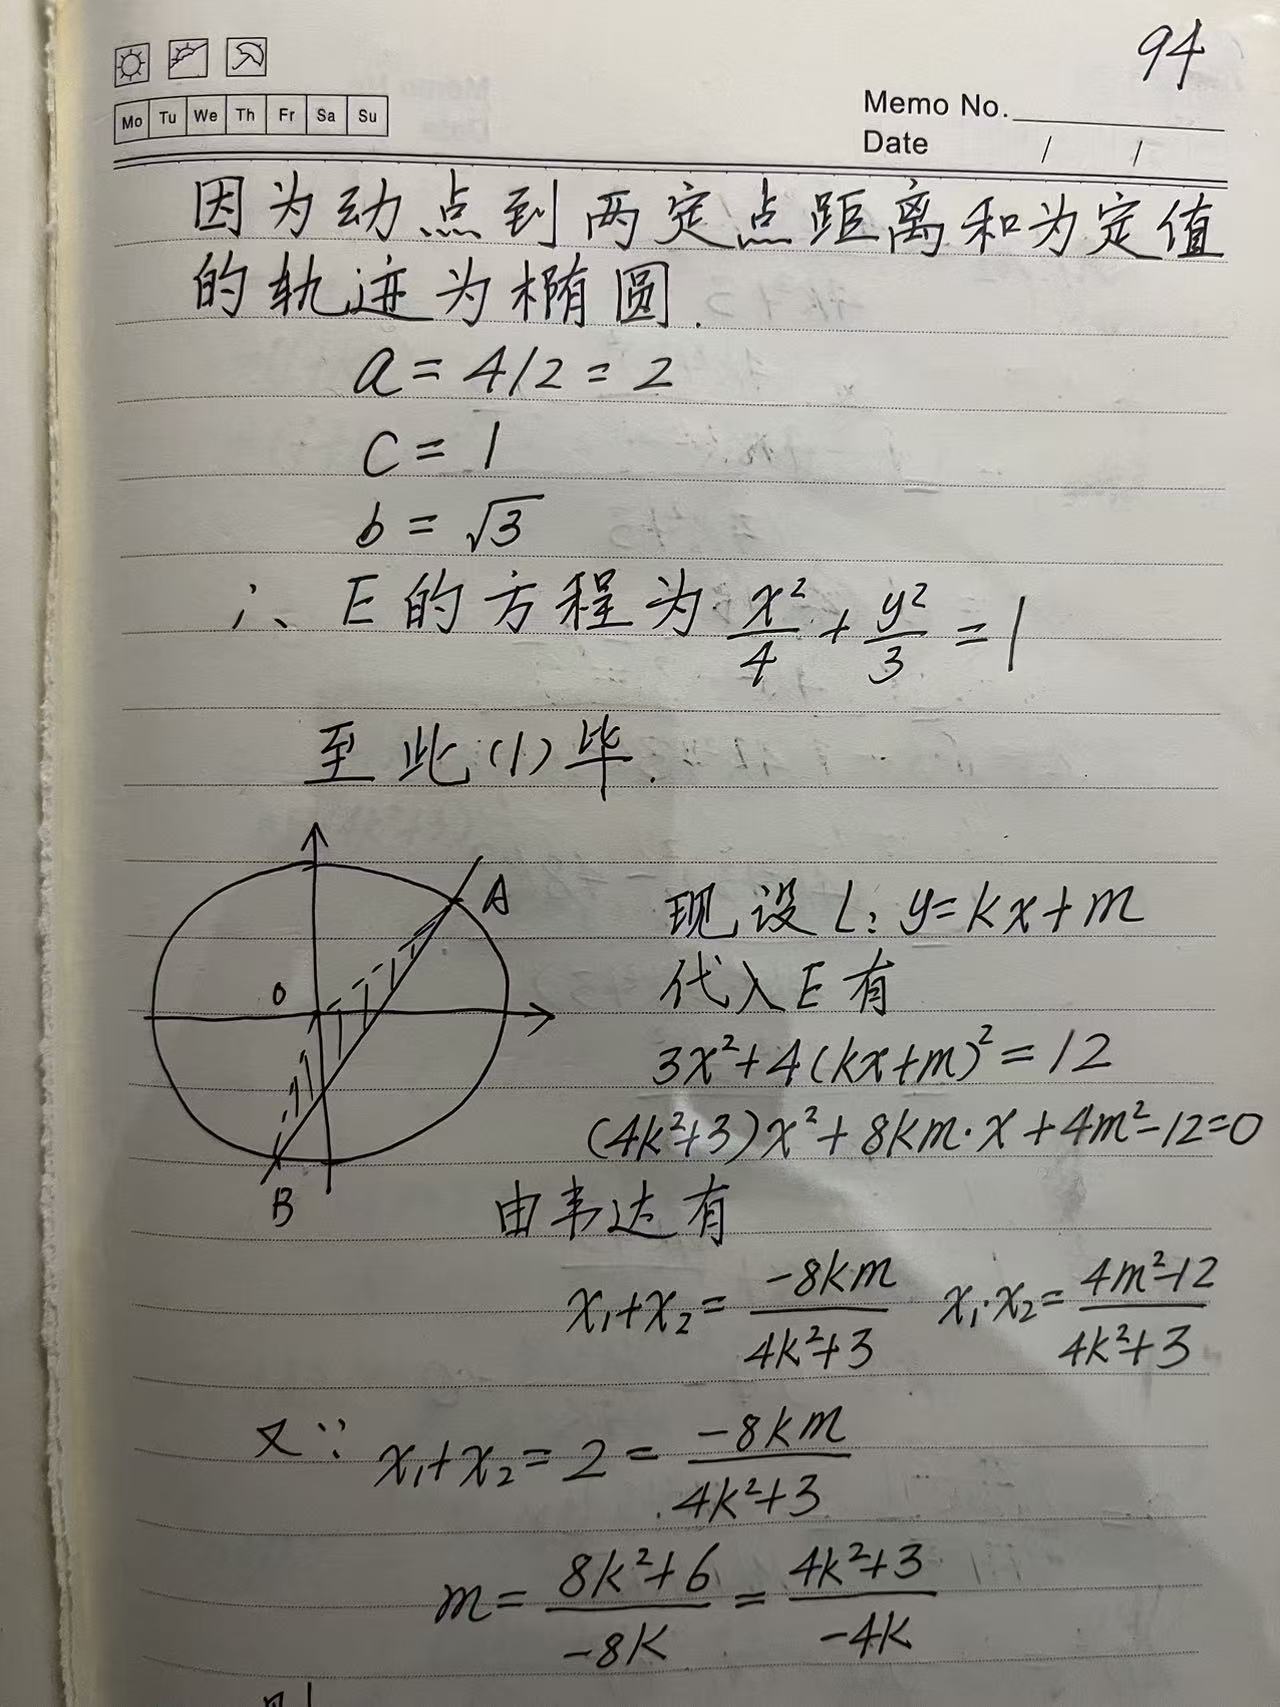 94
Mo Tu We Th Fr Sa Su
Memo No.
Date / /
因为动点到两定点距离和为定值
的轨迹为椭圆.
a = 4/2 = 2
c = 1
b = √3
∴ E的方程为 x²/4 + y²/3 = 1
至此(1)毕.
A
O
B
现设 l: y=kx+m
代入E有
3x²+4(kx+m)²=12
(4k²+3)x²+8km·x+4m²-12=0
由韦达有
x₁+x₂= -8km/4k²+3 x₁·x₂= 4m²-12/4k²+3
又∵ x₁+x₂=2= -8km/4k²+3
m= 8k²+6/-8k = 4k²+3/-4k